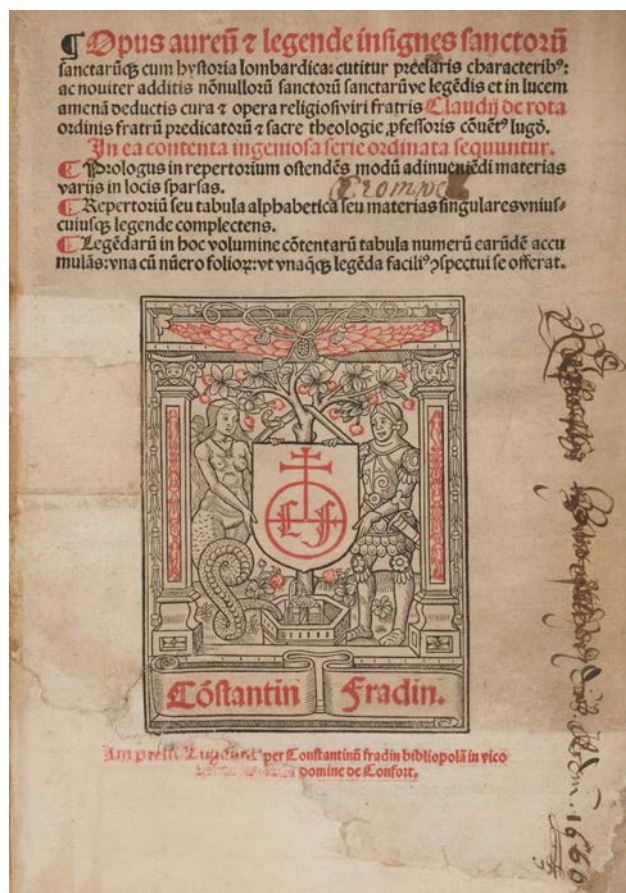 ¶ Opus aureū ⁊ legende insignes sanctorū
sanctarūqꝫ cum hystoria lombardica: cutitur preclaris characteribꝰ:
ac nouiter additis nōnullorū sanctorū sanctarūve legēdis et in lucem
amenā deductis cura ⁊ opera religiosi viri fratris Claudij de rota
ordinis fratrū predicatorū ⁊ sacre theologie ꝓfessoris cōuētꝰ lugď.
In ea contenta ingeniosa serie ordinata sequuntur.
¶ Prologus in repertorium ostendēs modū adinueniēdi materias
varijs in locis sparsas.
Crompe
¶ Repertoriū seu tabula alphabetica seu materias singulares vnius-
cuiusqꝫ legende complectens.
¶ Legēdarū in hoc volumine cōtentarū tabula numerū earūdē accu
mulās: vna cū nūero folioꝝ: vt vnaq̄qꝫ legēda faciliꝰ ↄspectui se offerat.
C F
Cōstantin Fradin.
per Constantinū fradin bibliopolā in vico
domine de Confort.
1660